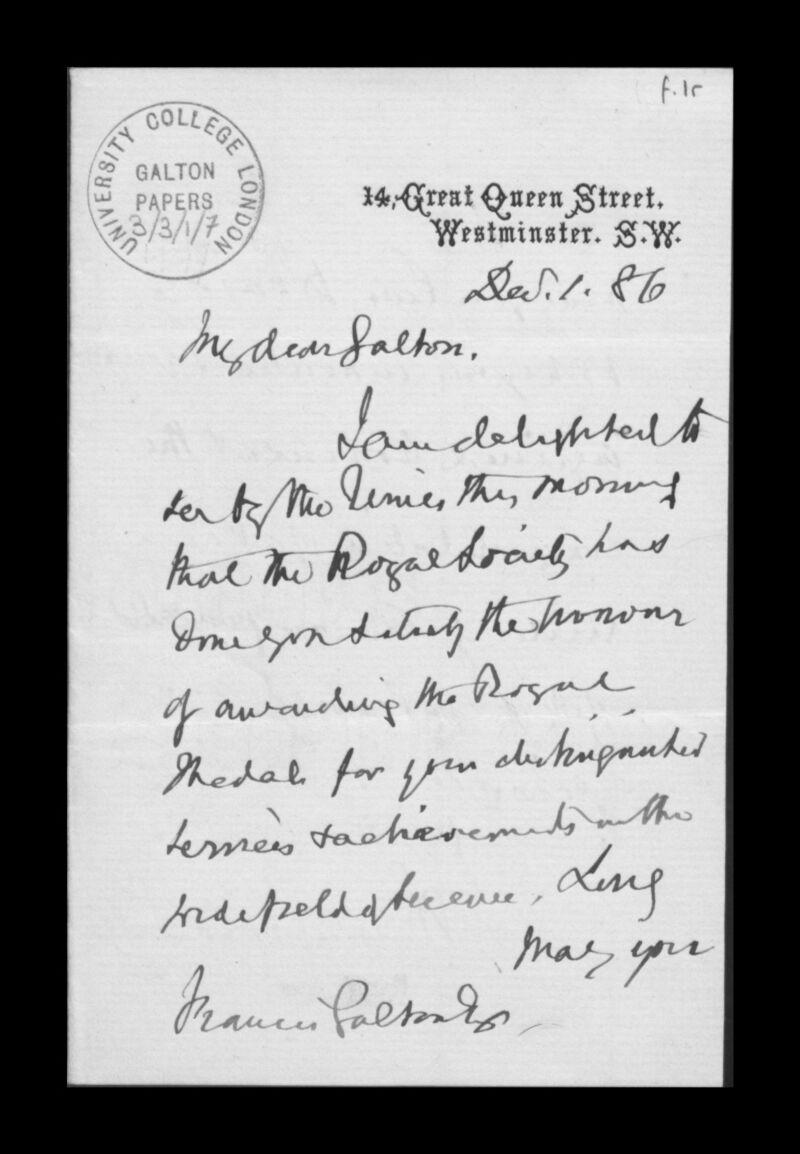 f.1r
UNIVERSITY COLLEGE LONDON
GALTON
PAPERS
3/3/1/7
14, Great Queen Street,
Westminster. S.W.
Dec. 1. 86
My dear Galton,
I am delighted to
see by the Times this morning
that the Royal Society has
done you & itself the honour
of awarding the Royal
Medal for your distinguished
services & achievements in the
wide field of Science. Long
may you
Francis Galton Esq